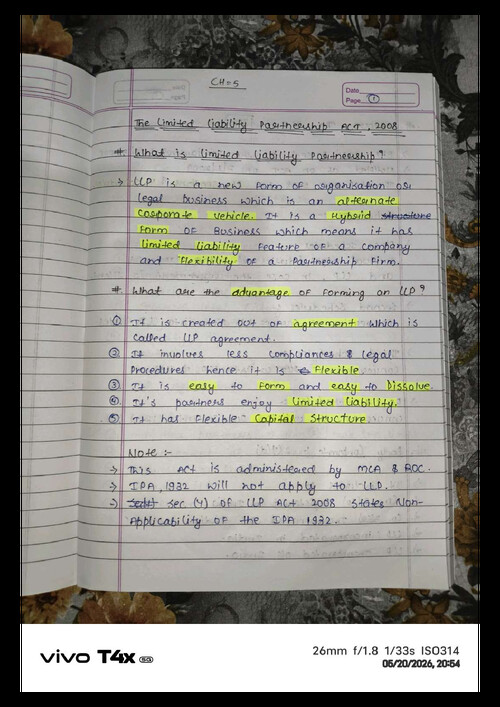 CH=5
Date
Page 1
The Limited Liability Partnership ACT, 2008
# What is limited liability Partnership?
→ LLP is a new form of organisation or
legal business which is an alternate
Corporate vehicle. It is a Hybrid structure
Form of Business which means it has
limited liability feature of a company
and flexibility of a Partnership Firm.
# What are the advantage of forming an LLP?
① It is created out of agreement which is
called LLP agreement.
② It involves less compliances & legal
Procedures hence it is Flexible
③ It is easy to Form and easy to Dissolve
④ It's partners enjoy limited liability.
⑤ It has flexible Capital Structure.
Note :-
→ This Act is administered by MCA & ROC.
→ IPA, 1932 will not apply to LLP.
→ Sec (4) of LLP ACT 2008 states Non-
Applicability of the IPA 1932.
vivo T4x 5G
26mm f/1.8 1/33s ISO314
05/20/2026, 20:54